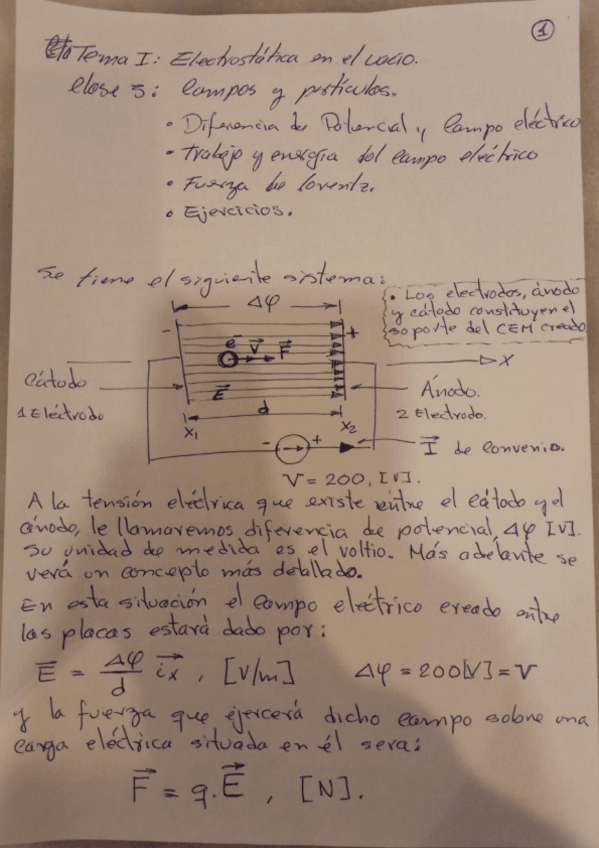 1
Tema I: Electrostática en el vacío.
Clase 3: Campos y partículas.
• Diferencia de Potencial y Campo eléctrico
• Trabajo y energía del campo eléctrico
• Fuerza de Lorentz.
• Ejercicios.
Se tiene el siguiente sistema:
Δφ
• Los electrodos, ánodo
y cátodo constituyen el
soporte del CEM creado
- +
e⁻ V⃗ F⃗
X
Cátodo
E⃗
Ánodo.
1 Eléctrodo
d
2 Electrodo.
X₁ X₂
- +
I⃗ de Convenio.
V = 200, [V].
A la tensión eléctrica que existe entre el cátodo y el
ánodo, le llamaremos diferencia de potencial, Δφ [V].
Su unidad de medida es el voltio. Más adelante se
verá un concepto más detallado.
En esta situación el Campo eléctrico creado entre
las placas estará dado por:
E⃗ = Δφ/d i⃗x , [V/m] Δφ = 200[V] = V
y la fuerza que ejercerá dicho campo sobre una
carga eléctrica situada en él sera:
F⃗ = q.E⃗ , [N].